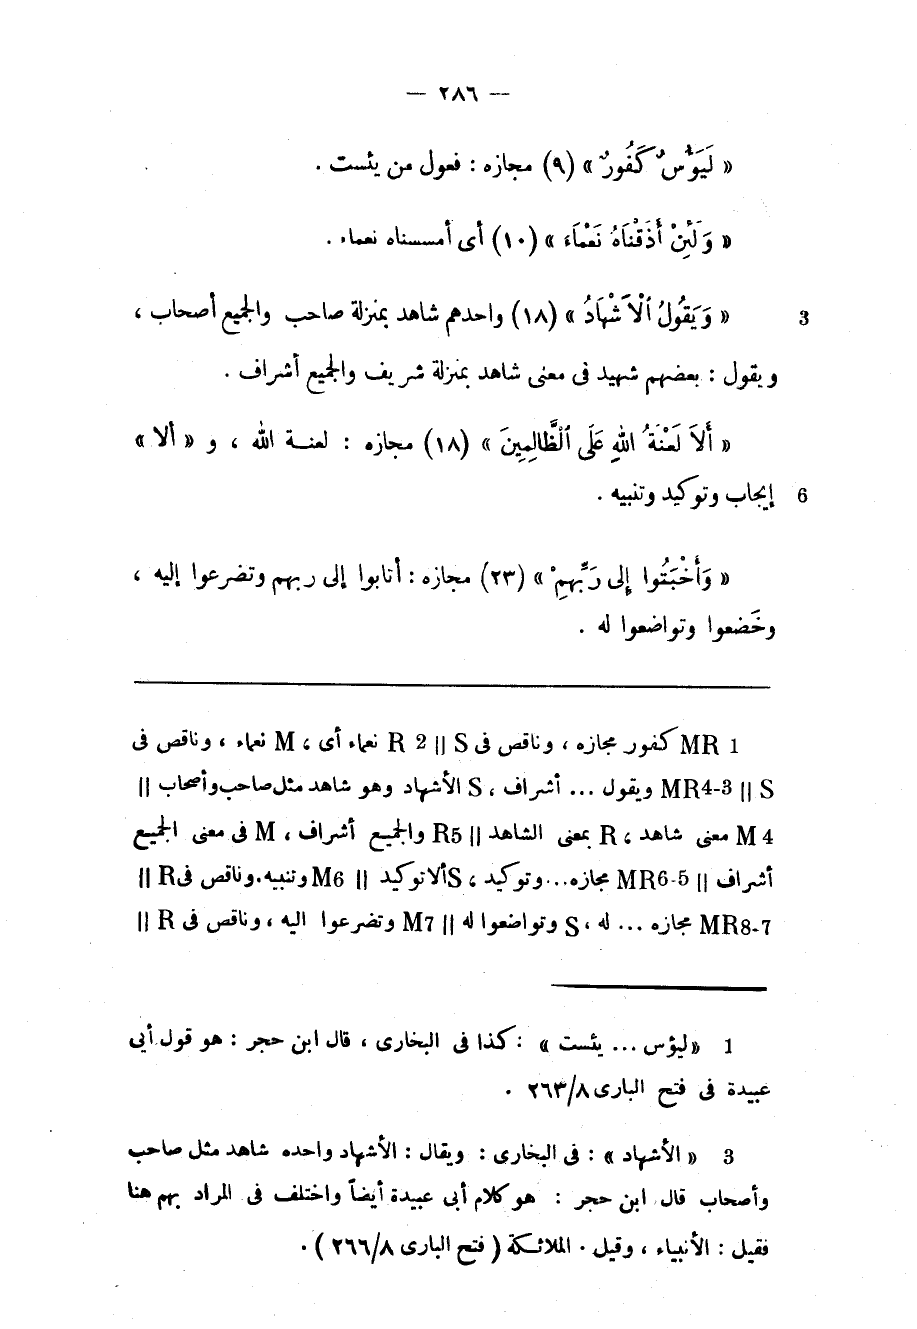 — ٢٨٦ —
« لَيَؤُسٌ كَفُورٌ » (٩) مجازه : فعول من يئست .
« وَلَئِنْ أَذَقْنَاهُ نَعْمَاءَ » (١٠) أى أمسسناه نعماء .
3 « وَيَقُولُ ٱلْأَشْهَادُ » (١٨) واحدهم شاهد بمنزلة صاحب والجميع أصحاب ،
ويقول : بعضهم شهيد فى معنى شاهد بمنزلة شريف والجميع أشراف .
« أَلَا لَعْنَةُ اللهِ عَلَى ٱلظَّالِمِينَ » (١٨) مجازه : لعنـة الله ، و « ألا »
6 إيجاب وتوكيد وتنبيه .
« وَأَخْبَتُوا إِلى رَبِّهِمْ » (٢٣) مجازه : أنابوا إلى ربهم وتضرعوا إليه ،
وخَضعوا وتواضعوا له .
1 MR كفور مجازه ، وناقص فى S || 2 R نعماء أى ، M نعماء ، وناقص فى
S || MR4-3 ويقول ... أشراف ، S الأشهاد وهو شاهد مثل صاحب وأصحاب ||
4 M معنى شاهد ، R بمعنى الشاهد || R5 والجميع أشراف ، M فى معنى الجميع
أشراف || MR6-5 مجازه...وتوكيد ، S ألا توكيد || M6 وتنبيه.وناقص فى R ||
MR8-7 مجازه ... له ، S وتواضعوا له || M7 وتضرعوا اليه ، وناقص فى R ||
1 «ليؤس ... يئست » : كذا فى البخارى ، قال ابن حجر : هو قول أبى
عبيدة فى فتح البارى ٢٦٣/٨ .
3 « الأشهاد » : فى البخارى : ويقال : الأشهاد واحده شاهد مثل صاحب
وأصحاب قال ابن حجر : هو كلام أبى عبيدة أيضاً واختلف فى المراد بهم هنا
فقيل : الأنبياء ، وقيل . الملائكة ( فتح البارى ٢٦٦/٨ ) .